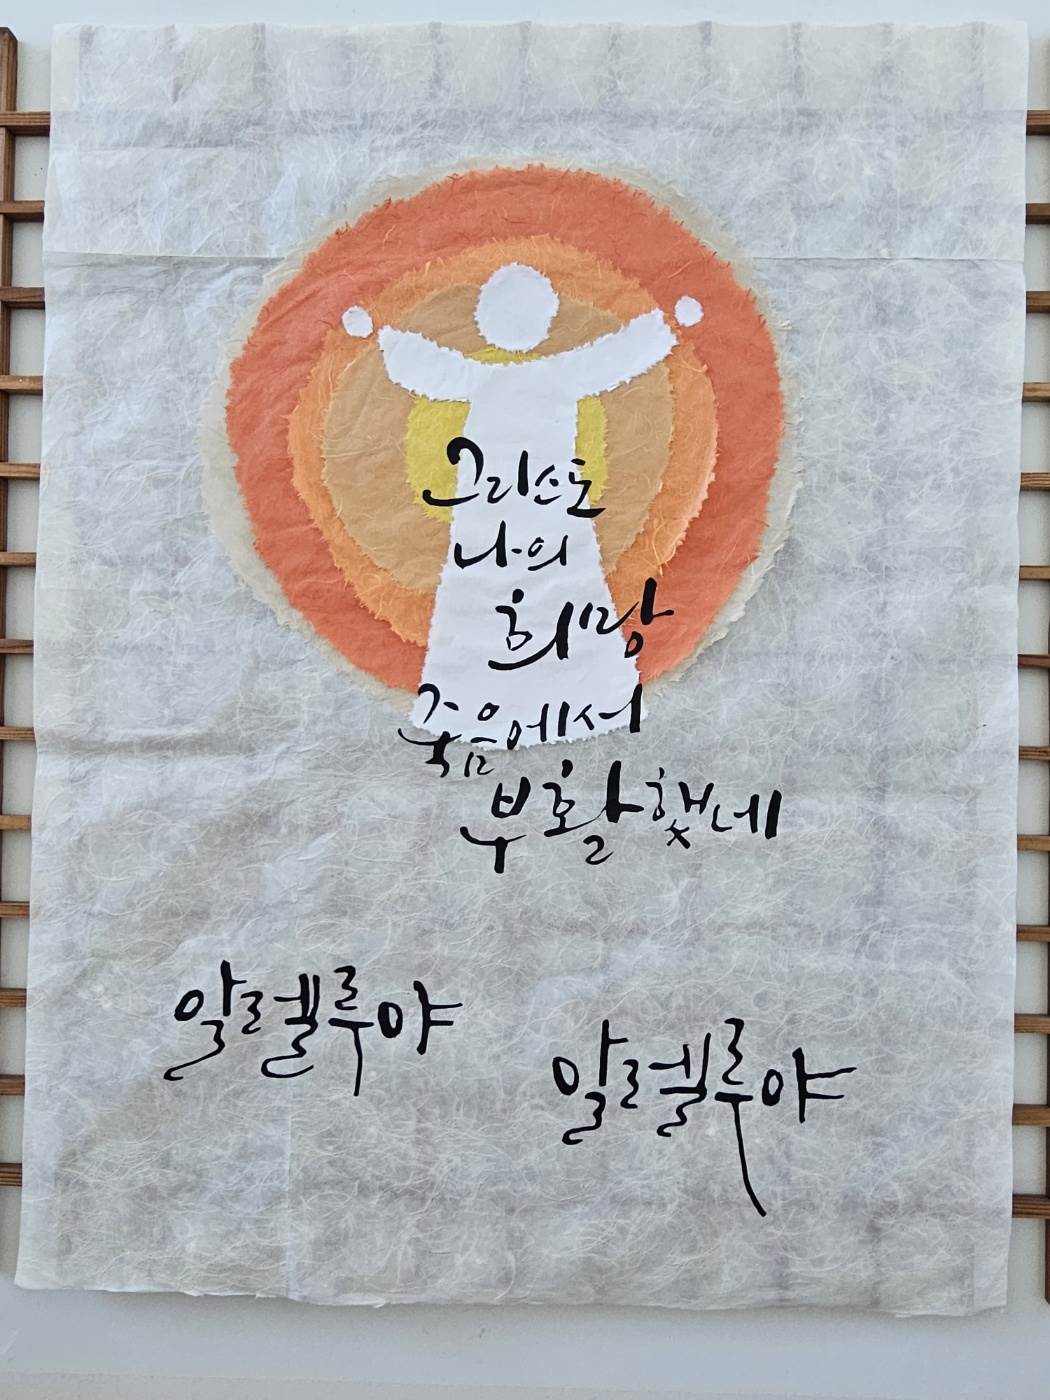 그리스도
나의
희망
죽음에서
부활했네
알렐루야
알렐루야